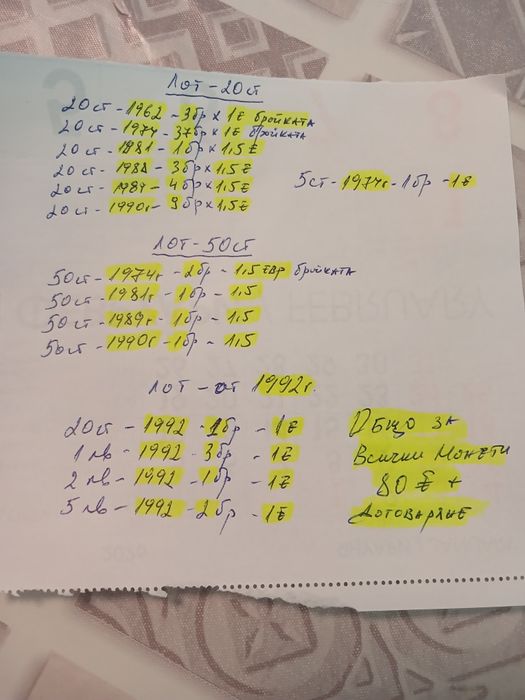 Лот - 20ст
20ст - 1962 - 3бр x 1€ бройката
20ст - 1974 - 37бр x 1€ бройката
20ст - 1981 - 1бр x 1,5€
20ст - 1988 - 3бр x 1,5€
20ст - 1989 - 4бр x 1,5€
20ст - 1990г - 9бр x 1,5€
5ст - 1974г - 1бр - 1€
Лот - 50ст
50ст - 1974г - 2бр - 1,5 евр бройката
50ст - 1981г - 1бр - 1,5
50ст - 1989г - 1бр - 1,5
50ст - 1990г - 1бр - 1,5
Лот - от 1992г.
20ст - 1992 - 1бр - 1€
1 лв - 1992 - 3бр - 1€
2 лв - 1992 - 1бр - 1€
5 лв - 1992 - 2бр - 1€
Общо за
Всички монети
80 € +
Договаряне